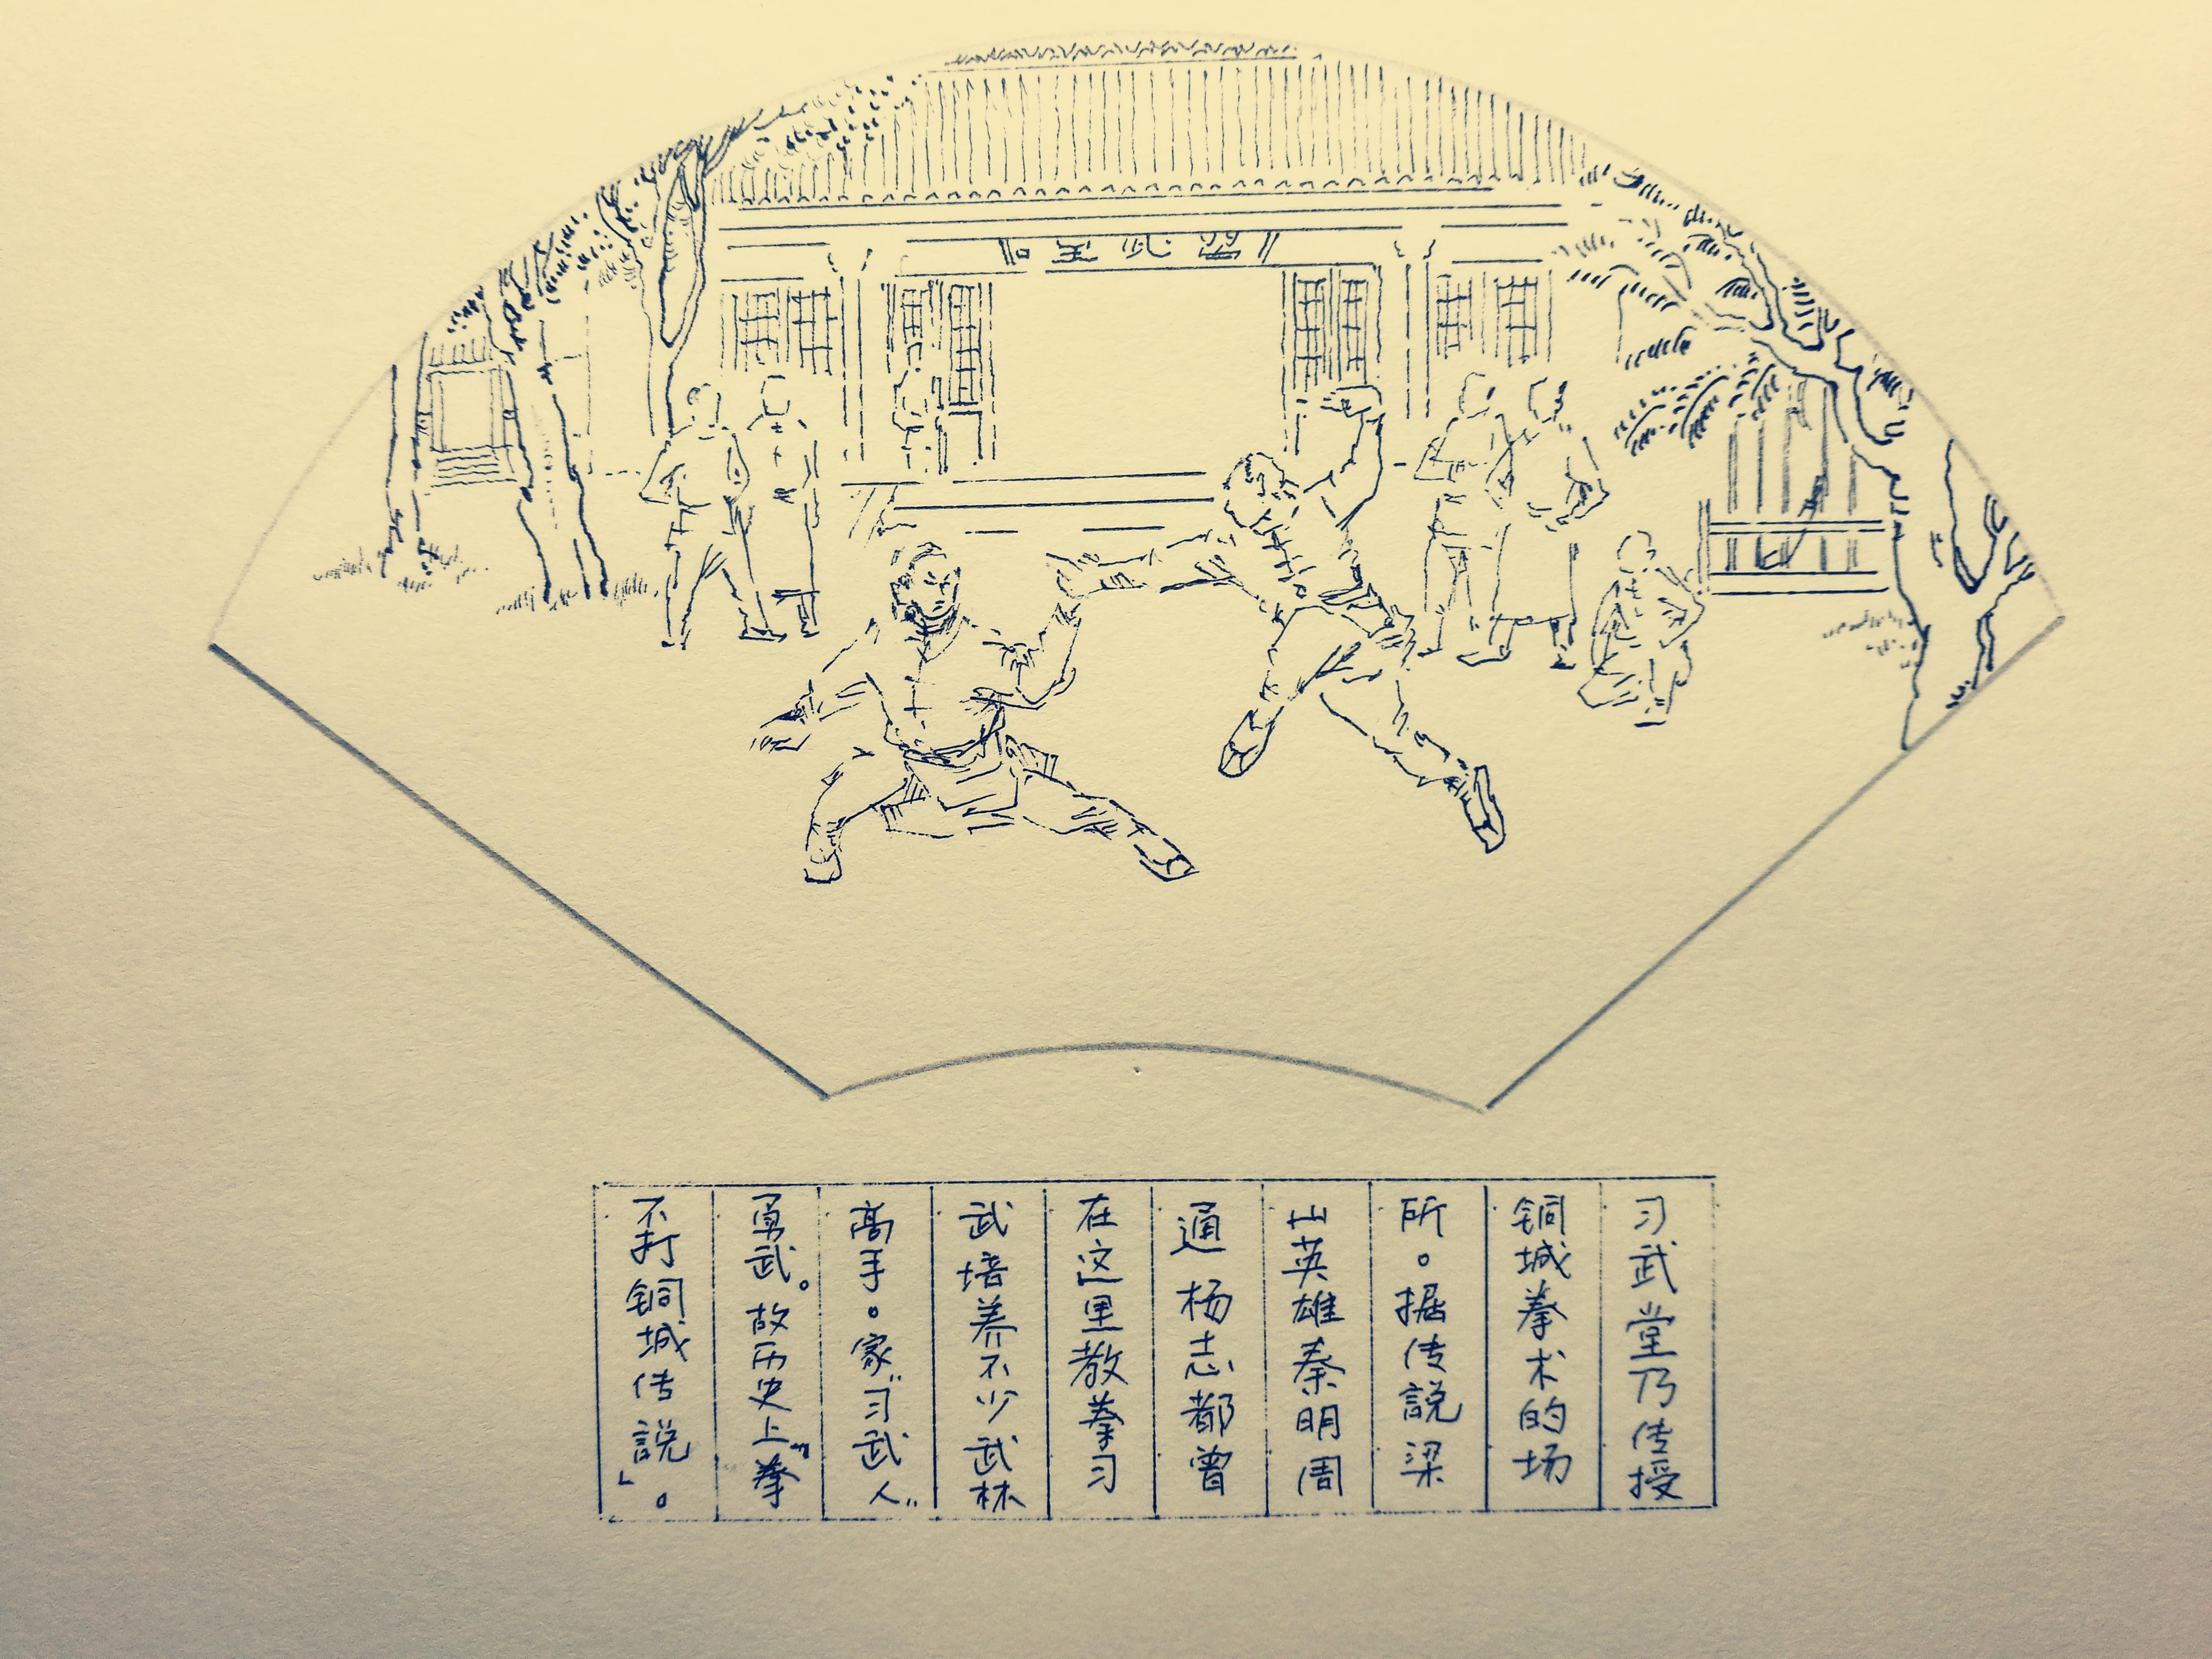 习武堂乃传授
铜城拳术的场
所。据传説梁
山英雄秦明周
通杨志都曾
在这里教拳习
武培养不少武林
高手。家“习武人”
勇武。故历史上“拳
不打铜城传説」。